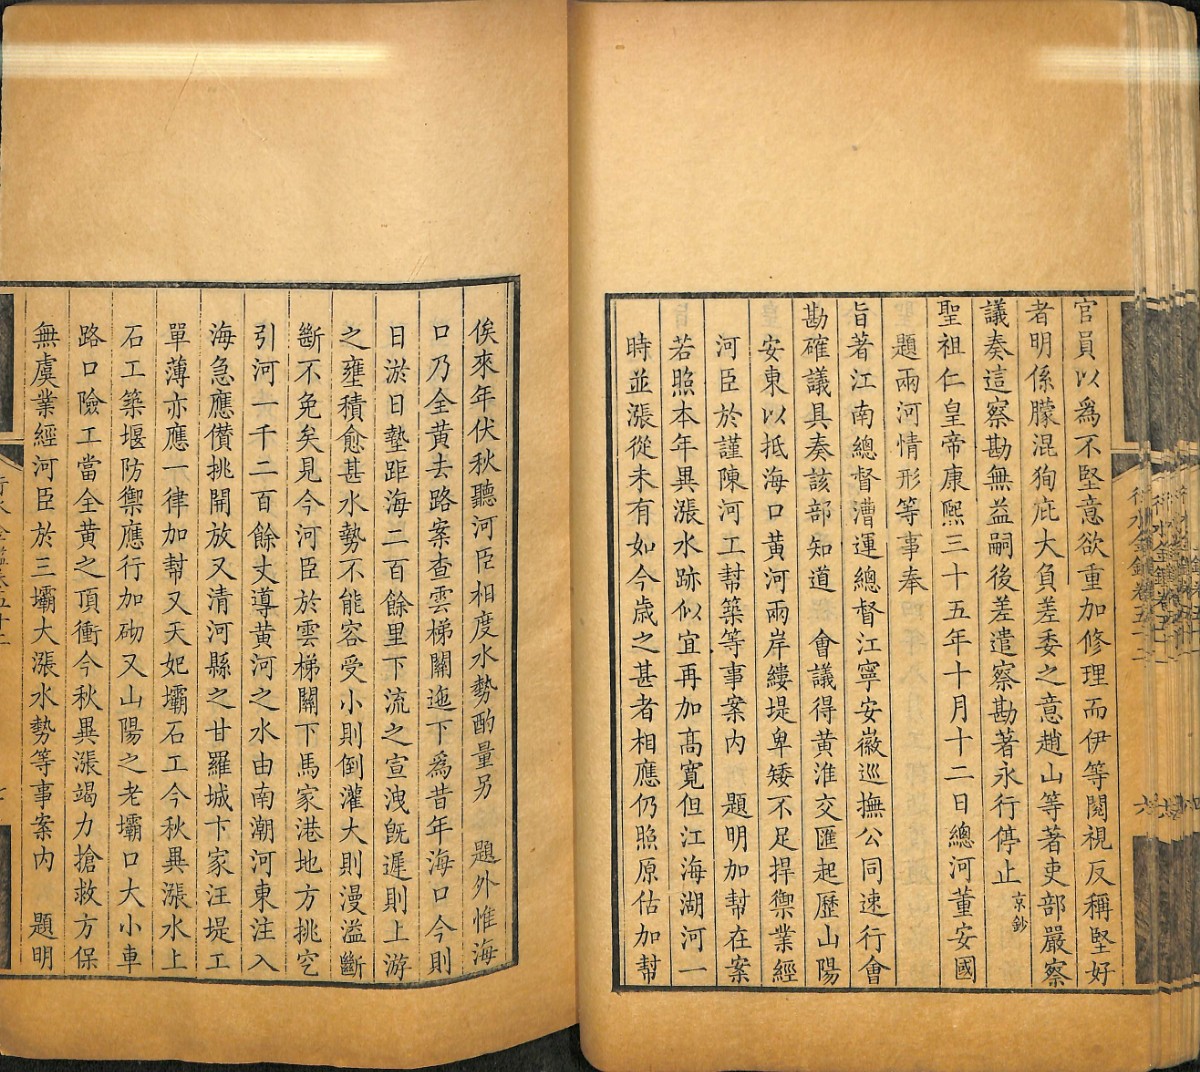 官員以爲不堅意欲重加修理而伊等閱視反稱堅好
者明係朦混狥庇大負差委之意趙山等著吏部嚴察
議奏這察勘無益嗣後差遣察勘著永行停止京鈔
聖祖仁皇帝康熙三十五年十月十二日總河董安國
題兩河情形等事奉
旨著江南總督漕運總督江寧安徽巡撫公同速行會
勘確議具奏該部知道 會議得黃淮交匯起歷山陽
安東以抵海口黃河兩岸縷堤卑矮不足捍禦業經
河臣於謹陳河工幫築等事案內 題明加幫在案
若照本年異漲水跡似宜再加高寬但江海湖河一
時並漲從未有如今歲之甚者相應仍照原估加幫
俟來年伏秋聽河臣相度水勢酌量另 題外惟海
口乃全黃去路案查雲梯關迤下爲昔年海口今則
日淤日墊距海二百餘里下流之宣洩旣遲則上游
之壅積愈甚水勢不能容受小則倒灌大則漫溢斷
斷不免矣見今河臣於雲梯關下馬家港地方挑空
引河一千二百餘丈導黃河之水由南潮河東注入
海急應儹挑開放又清河縣之甘羅城卞家汪堤工
單薄亦應一律加幫又天妃壩石工今秋異漲水上
石工築堰防禦應行加砌又山陽之老壩口大小車
路口險工當全黃之頂衝今秋異漲竭力搶救方保
無虞業經河臣於三壩大漲水勢等事案內 題明